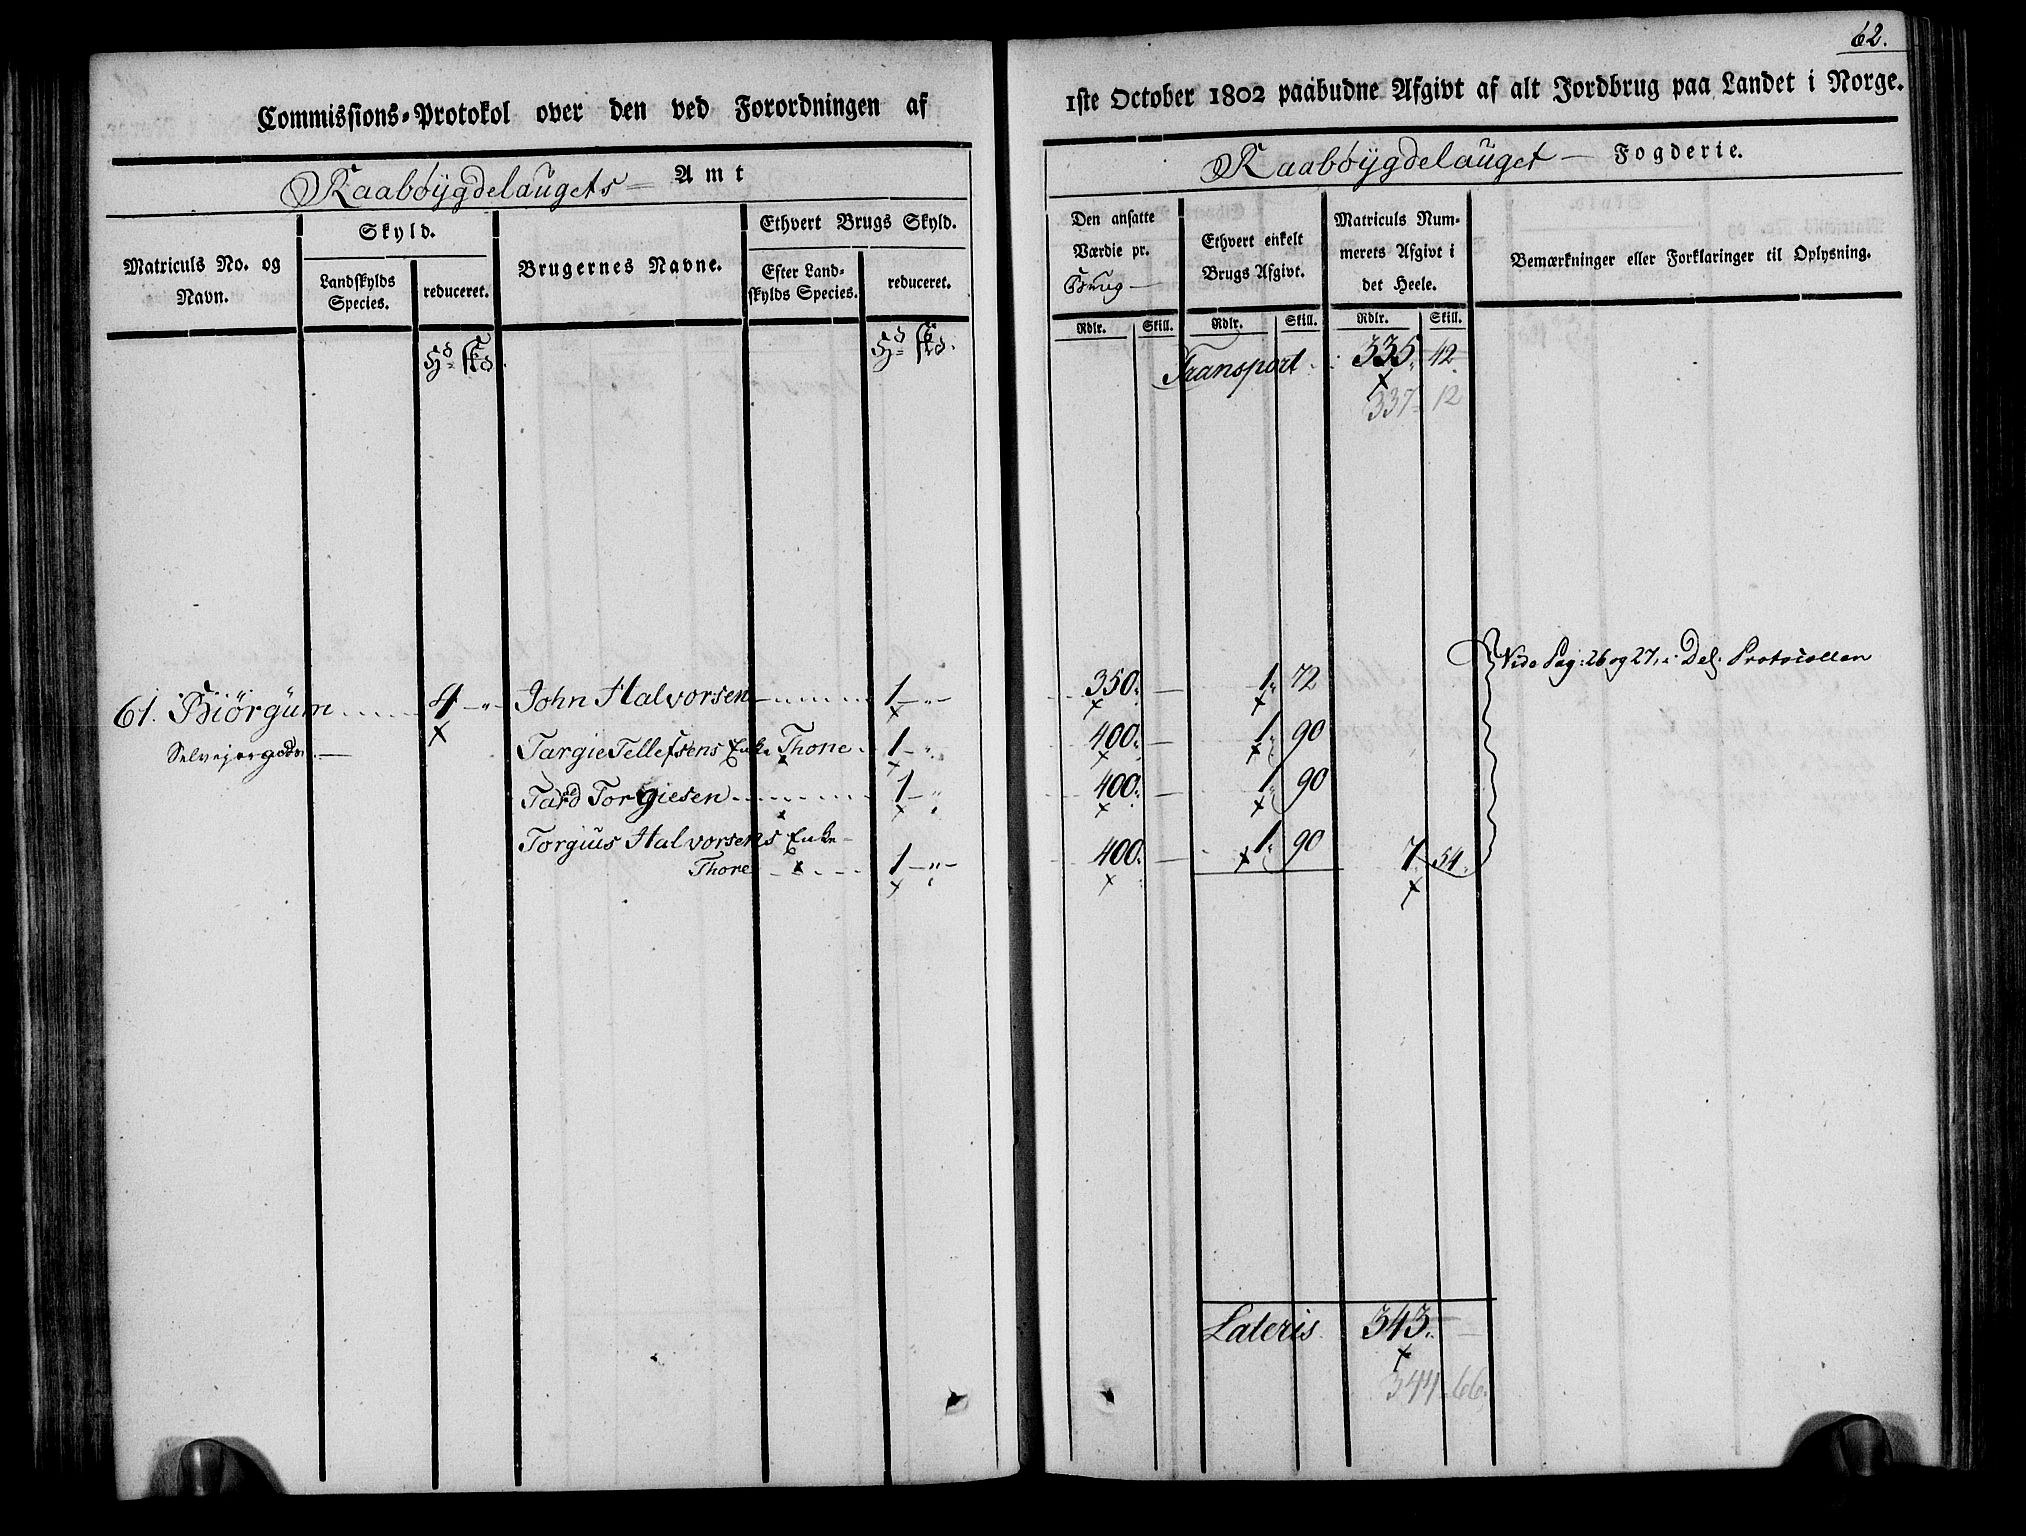 62.
Commissions-Protokol over den ved Forordningen af
1ste October 1802 paabudne Afgivt af alt Jordbrug paa Landet i Norge.
Raabøygdelaugets Amt
Raabøygdelauget Fogderie.
Matriculs No. og Navn.
Skyld.
Landskylds Species.
reduceret.
Brugernes Navne.
Ethvert Brugs Skyld.
Efter Landskylds Species.
reduceret.
Den ansatte Værdie pr. Brug
Ethvert enkelt Brugs Afgivt.
Matriculs Nummerets Afgivt i det Heele.
Bemærkninger eller Forklaringer til Oplysning.
Rdlr. Skill. Rdlr. Skill. Rdlr. Skill.
Hd skd Hd skd.
Transport 335. 42.
337. 12
Vide Pag: 26 og 27, i Del. Protocollen
61. Biørgum 4 - " - John Halvorsen 1 - " - 350. 1. 72
Selvejergods Targie Tellefsens Enke Thone 1 - " 400. 1. 90
Tard Torgiesen 1 - " 400. 1. 90
Torgius Halvorsens Enke
Thore 1 - " - 400. 1. 90 7 54.
Lateris 343.
344. 66.